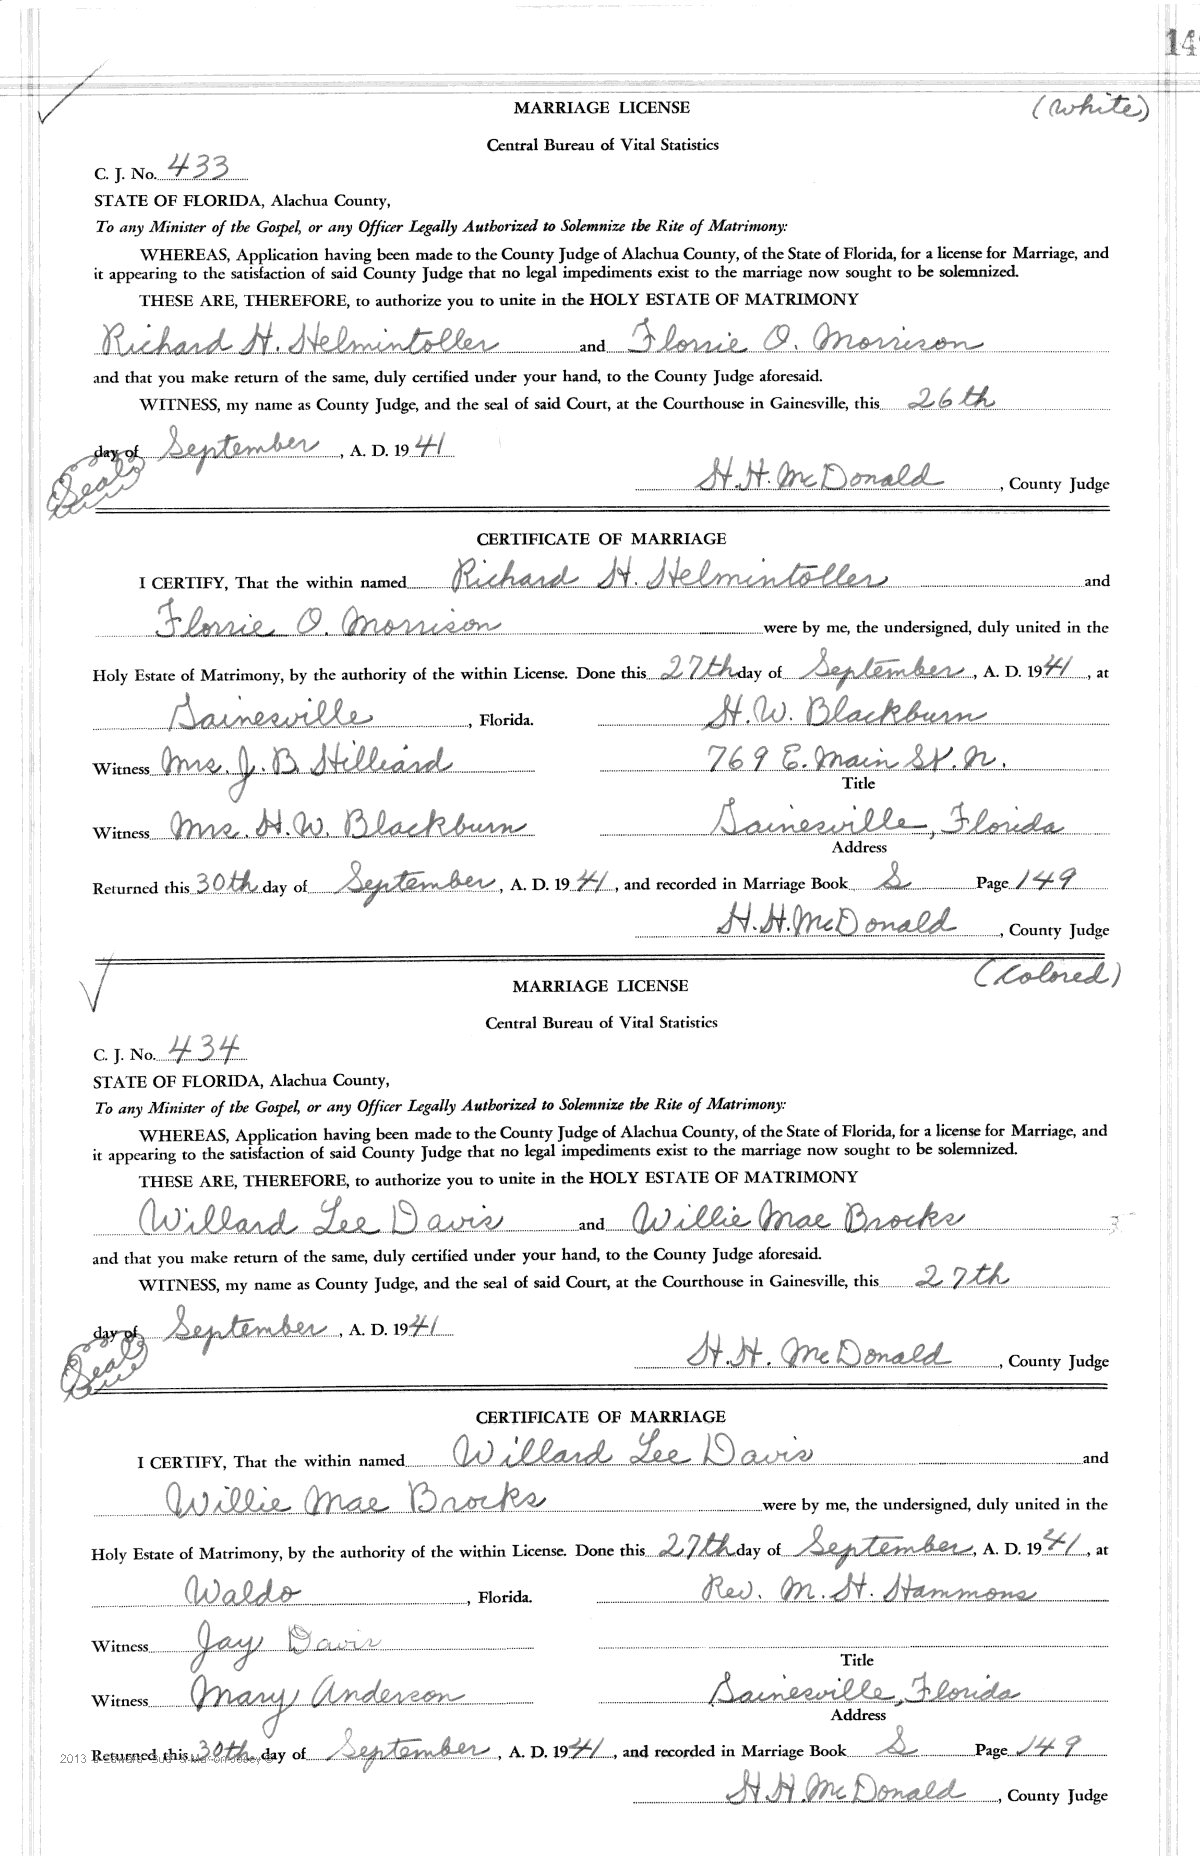 14
(White)
MARRIAGE LICENSE
Central Bureau of Vital Statistics
C. J. No. 433
STATE OF FLORIDA, Alachua County,
To any Minister of the Gospel, or any Officer Legally Authorized to Solemnize the Rite of Matrimony:
WHEREAS, Application having been made to the County Judge of Alachua County, of the State of Florida, for a license for Marriage, and
it appearing to the satisfaction of said County Judge that no legal impediments exist to the marriage now sought to be solemnized.
THESE ARE, THEREFORE, to authorize you to unite in the HOLY ESTATE OF MATRIMONY
Richard H. Helmintoller and Florrie O. Morrison
and that you make return of the same, duly certified under your hand, to the County Judge aforesaid.
WITNESS, my name as County Judge, and the seal of said Court, at the Courthouse in Gainesville, this 26th
day of September, A. D. 1941
(Seal)
H. H. McDonald, County Judge
CERTIFICATE OF MARRIAGE
I CERTIFY, That the within named Richard H. Helmintoller and
Florrie O. Morrison were by me, the undersigned, duly united in the
Holy Estate of Matrimony, by the authority of the within License. Done this 27th day of September, A. D. 1941, at
Gainesville, Florida. H. W. Blackburn
Witness Mrs. J. B. Hilliard 769 E. Main St. N.
Title
Witness Mrs. H. W. Blackburn Gainesville, Florida
Address
Returned this 30th day of September, A. D. 1941, and recorded in Marriage Book S Page 149
H. H. McDonald, County Judge
(Colored)
MARRIAGE LICENSE
Central Bureau of Vital Statistics
C. J. No. 434
STATE OF FLORIDA, Alachua County,
To any Minister of the Gospel, or any Officer Legally Authorized to Solemnize the Rite of Matrimony:
WHEREAS, Application having been made to the County Judge of Alachua County, of the State of Florida, for a license for Marriage, and
it appearing to the satisfaction of said County Judge that no legal impediments exist to the marriage now sought to be solemnized.
THESE ARE, THEREFORE, to authorize you to unite in the HOLY ESTATE OF MATRIMONY
Willard Lee Davis and Willie Mae Brocks
and that you make return of the same, duly certified under your hand, to the County Judge aforesaid.
WITNESS, my name as County Judge, and the seal of said Court, at the Courthouse in Gainesville, this 27th
day of September, A. D. 1941
(Seal)
H. H. McDonald, County Judge
CERTIFICATE OF MARRIAGE
I CERTIFY, That the within named Willard Lee Davis and
Willie Mae Brocks were by me, the undersigned, duly united in the
Holy Estate of Matrimony, by the authority of the within License. Done this 27th day of September, A. D. 1941, at
Waldo, Florida. Rev. M. H. Hammons
Witness Jay Davis
Title
Witness Mary Anderson Gainesville, Florida
Address
Returned this 30th day of September, A. D. 1941, and recorded in Marriage Book S Page 149
2013
H. H. McDonald, County Judge